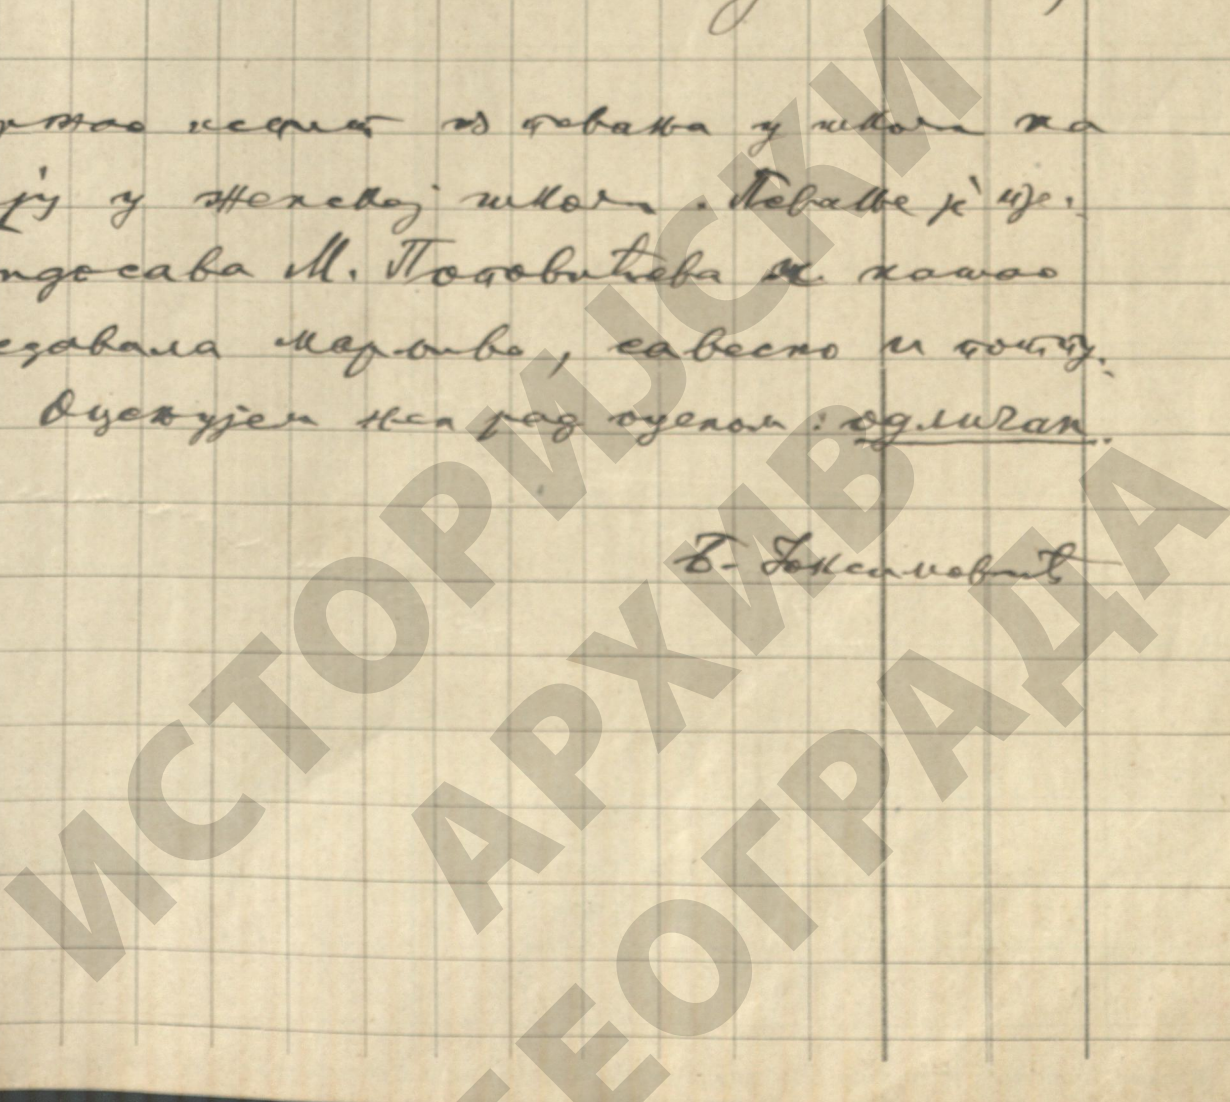 ржао испит из певања у школи на
ју у женској школи. Певање је пре-
идосава М. Поповићева и нашао
едавала марљиво, савесно и потпу-
Оцењујем њен рад оценом: одличан.
Б. Јоксимовић
ИСТОРИЈСКИ
АРХИВ
БЕОГРАДА